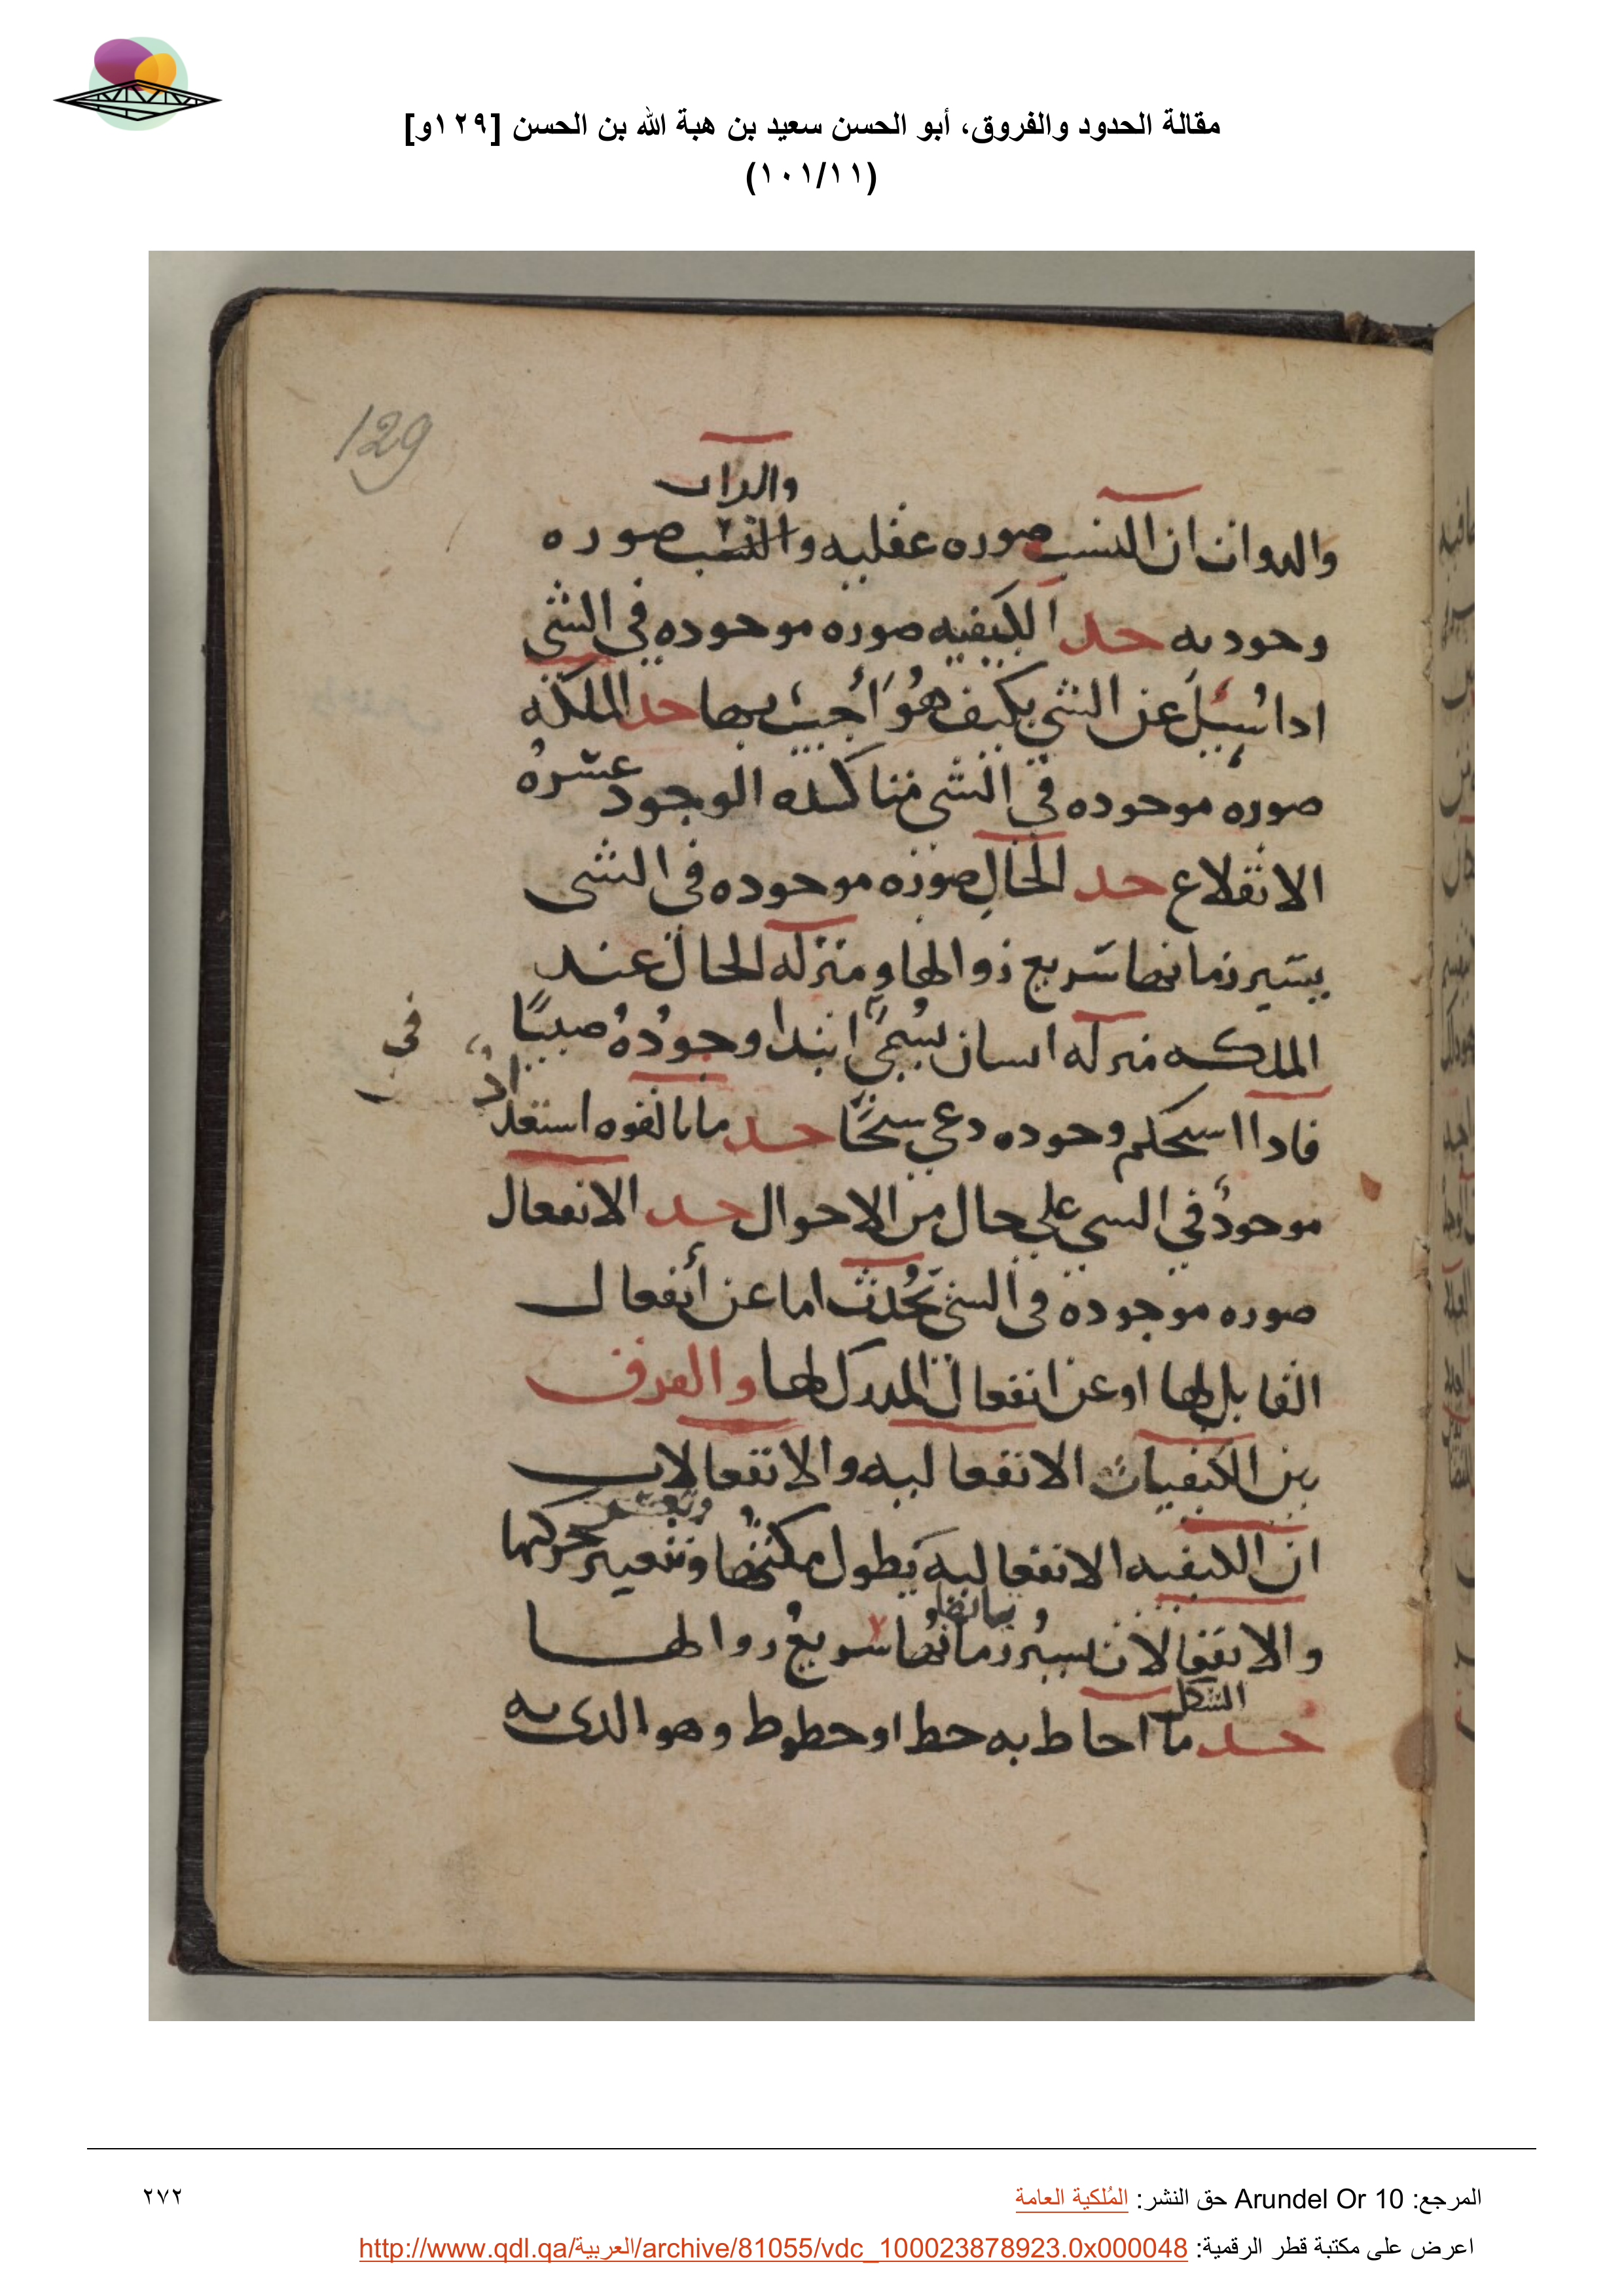 مقالة الحدود والفروق، أبو الحسن سعيد بن هبة الله بن الحسن [١٢٩و]
(١٠١/١١)
129
والدواب
والدوات ان النسب صوره عقليه والنسب صوره
وحوديه حد الكيفيه صوره موحوده في الشي
ادا سُيلَ عن الشي بكيف هُوَ أجيبَ بها حد الملكه
صوره موحوده في الشي متاكده الوجود عسره
الانقلاع حد الحال صوره موحوده في الشي
يسير زمانها سريع زوالها ومنزله الحال عند
الملكه منزله انسان يسُمىَّ ابتدا وجُودُهُ صبيًا
في
فادا اسحكم وحوده دعي سيخًا حد ما بالقوه استعداد
موحودٌ في السي علي حال من الاحوال حد الانفعال
صوره موجوده في الشي تحُدث اما عن أنفعال
القابل لها او عن انفعال المدرك لها والفرق
بين الكيفيات الانفعاليه والانفعالات
ان الكيفيه الانفعاليه يطول مكثها وتتعير حركتها
والانفعالات يسير زمانها سريعُ زوالها
الشكل
حد ما احاط به خط او خطوط وهو الدي به
المرجع: Arundel Or 10 حق النشر: المُلكية العامة
٢٧٢
اعرض على مكتبة قطر الرقمية: http://www.qdl.qa/العربية/archive/81055/vdc_100023878923.0x000048